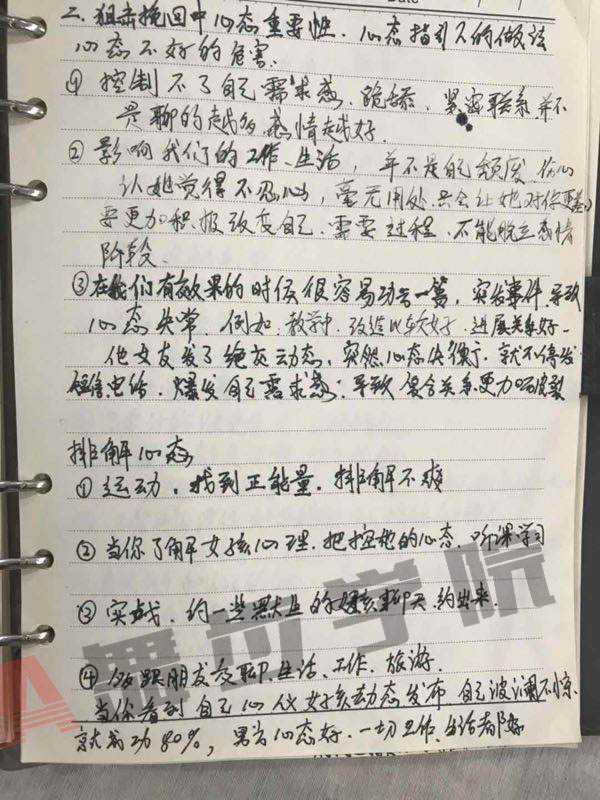 Date
二、狙击挽回中心态重要性、心态指引人的做法
心态不好的危害.
① 控制不了自己需求感、跪舔、紧密联系.并不
是聊的越多,感情越好.
② 影响我们的工作、生活,并不是的频度
认她觉得不忍心,毫无用处.只会让她对你更差
要更加积极改变自己.需要过程.不能脱离感情
阶段、
③在我们有效果的时候很容易功亏一篑,突发事件.导致
心态失常.例如.教学中.改造比较好.进展关系好一
他女友发了绝交动态,突然心态失衡了,就不停发
短信电话.爆发自己需求感;导致复合关系更加破裂
排解心态
① 运动.找到正能量.排解不爽
② 当你了解女孩心理.把控她的心态.听课学习
③ 实战.约一些的女孩聊天.约出来.
④ 多跟朋友交职.生活、工作、旅游.
当你看到自己心仪女孩动态发布.自己波澜不惊.
就成功80%,男为心态好.一切工作、生活都好
学院